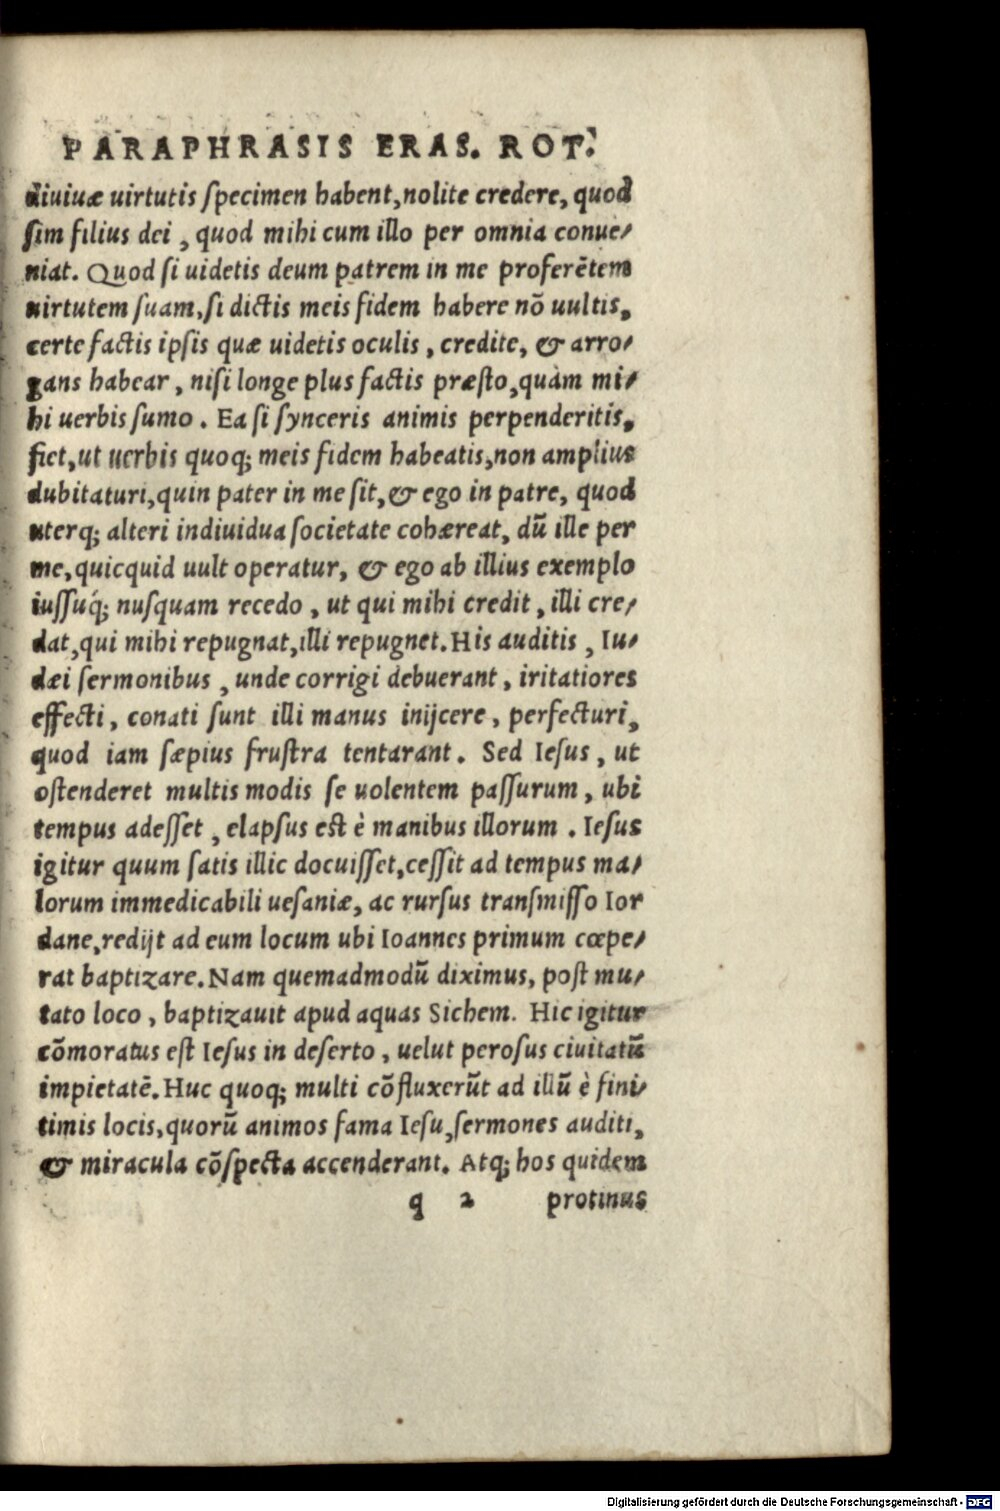 PARAPHRASIS ERAS. ROT.
diuiuæ uirtutis ſpecimen habent, nolite credere, quod
ſim filius dei, quod mihi cum illo per omnia conue/
niat. Quod ſi uidetis deum patrem in me proferẽtem
uirtutem ſuam, ſi dictis meis fidem habere nõ uultis,
certe factis ipſis quæ uidetis oculis, credite, & arro/
gans habear, niſi longe plus factis præſto, quàm mi/
hi uerbis ſumo. Ea ſi ſynceris animis perpenderitis,
fiet, ut uerbis quoq; meis fidem habeatis, non amplius
dubitaturi, quin pater in me ſit, & ego in patre, quod
uterq; alteri indiuidua ſocietate cohæreat, dũ ille per
me, quicquid uult operatur, & ego ab illius exemplo
iuſſuq́; nuſquam recedo, ut qui mihi credit, illi cre/
dat, qui mihi repugnat, illi repugnet. His auditis, Iu/
dæi ſermonibus, unde corrigi debuerant, iritatiores
effecti, conati ſunt illi manus inijcere, perfecturi,
quod iam ſæpius fruſtra tentarant. Sed Ieſus, ut
oſtenderet multis modis ſe uolentem paſſurum, ubi
tempus adeſſet, elapſus eſt è manibus illorum. Ieſus
igitur quum ſatis illic docuiſſet, ceſſit ad tempus ma/
lorum immedicabili ueſaniæ, ac rurſus tranſmiſſo Ior
dane, redijt ad eum locum ubi Ioannes primum cœpe/
rat baptizare. Nam quemadmodũ diximus, poſt mu/
tato loco, baptizauit apud aquas Sichem. Hic igitur
cõmoratus eſt Ieſus in deſerto, uelut peroſus ciuitatũ
impietatẽ. Huc quoq; multi cõfluxerũt ad illũ è fini/
timis locis, quorũ animos fama Ieſu, ſermones auditi,
& miracula cõſpecta accenderant. Atq; hos quidem
q 2 protinus
Digitalisierung gefördert durch die Deutsche Forschungsgemeinschaft - DFG